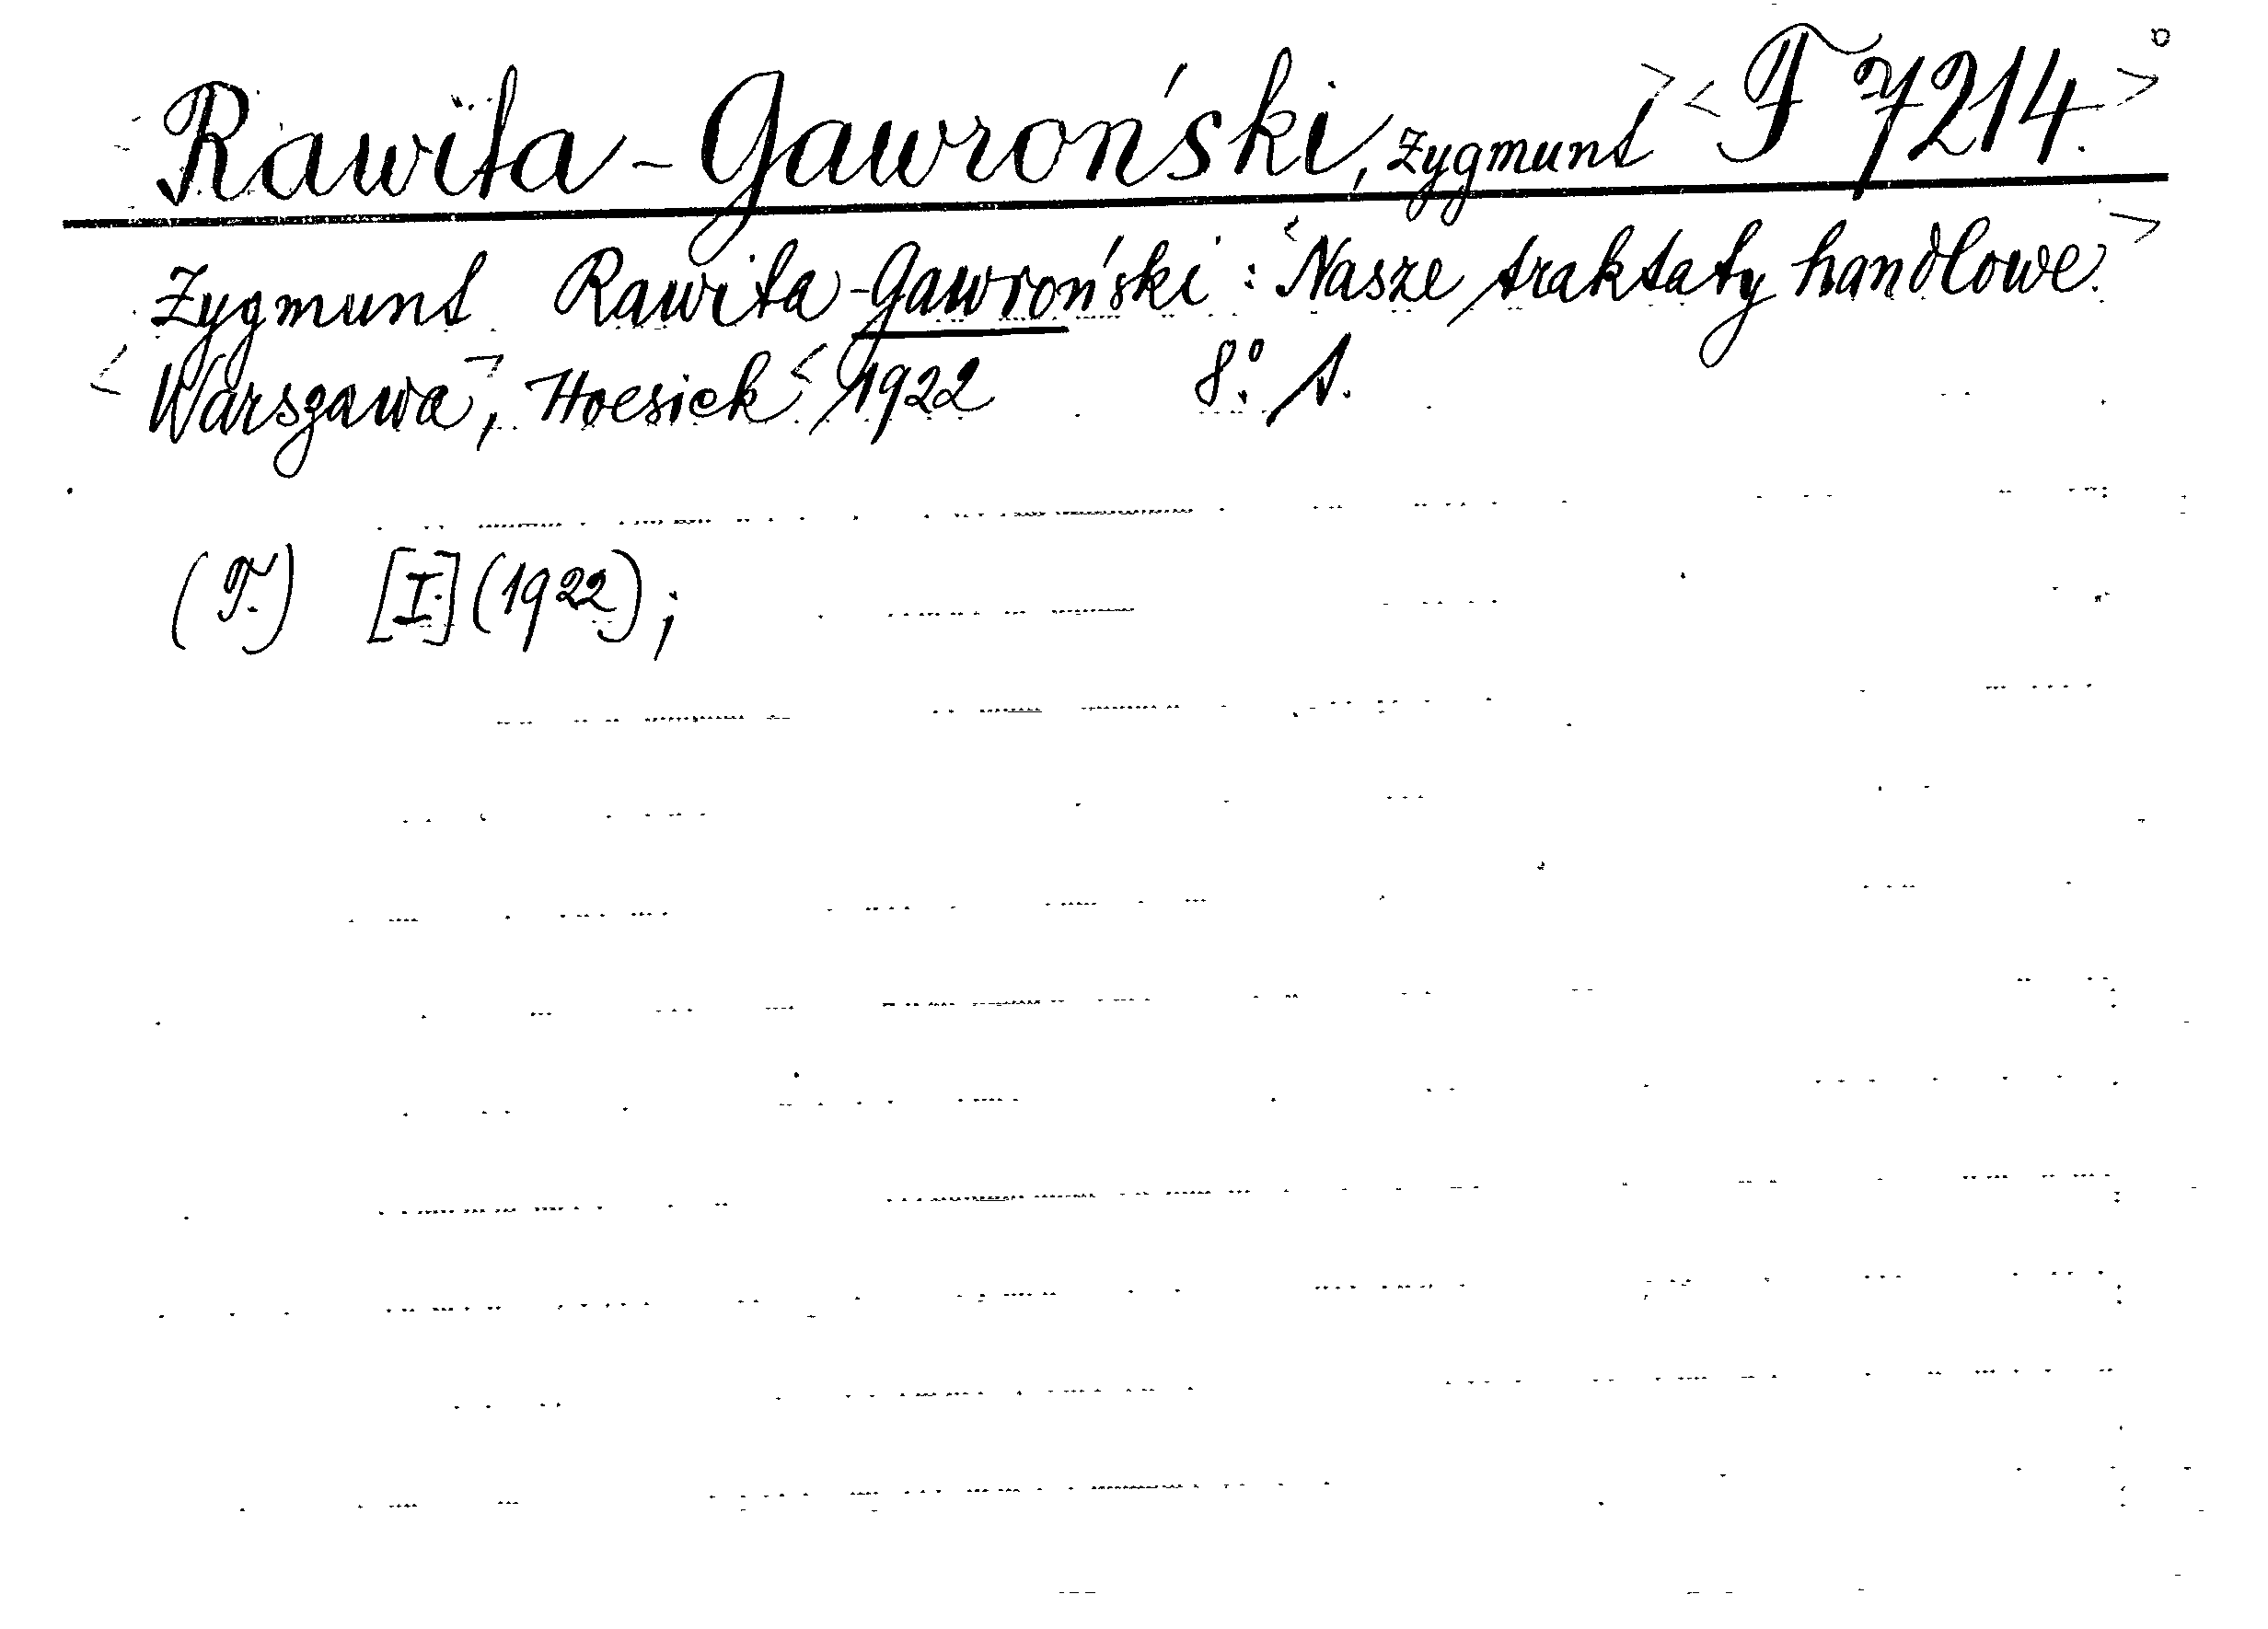 Rawita-Gawroński, Zygmunt> <F 7214.>°
Zygmunt Rawita-Gawroński: <Nasze traktaty handlowe.>
<Warszawa>, Hoesick <1922 8°. A.
(F.) [I.] (1922);